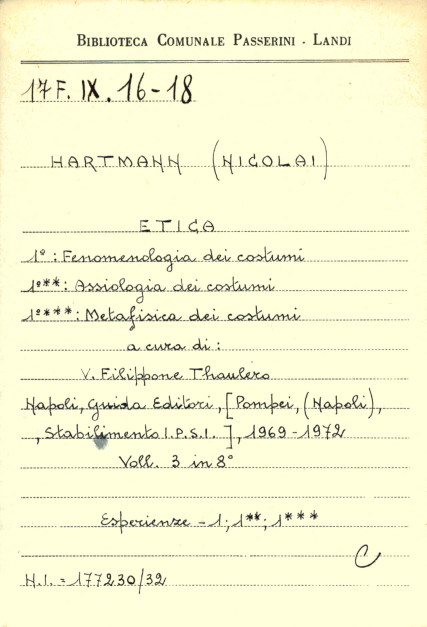 BIBLIOTECA COMUNALE PASSERINI - LANDI
17 F. IX. 16-18
HARTMANN (NICOLAI)
ETICA
1°: Fenomenologia dei costumi
1°**: Assiologia dei costumi
1°***: Metafisica dei costumi
a cura di:
V. Filippone Thaulero
Napoli, Guida Editori, [Pompei, (Napoli),
, Stabilimento I.P.S.I. ], 1969-1972
Voll. 3 in 8°
Esperienze - 1; 1**; 1***
C
N.I. = 177230/32